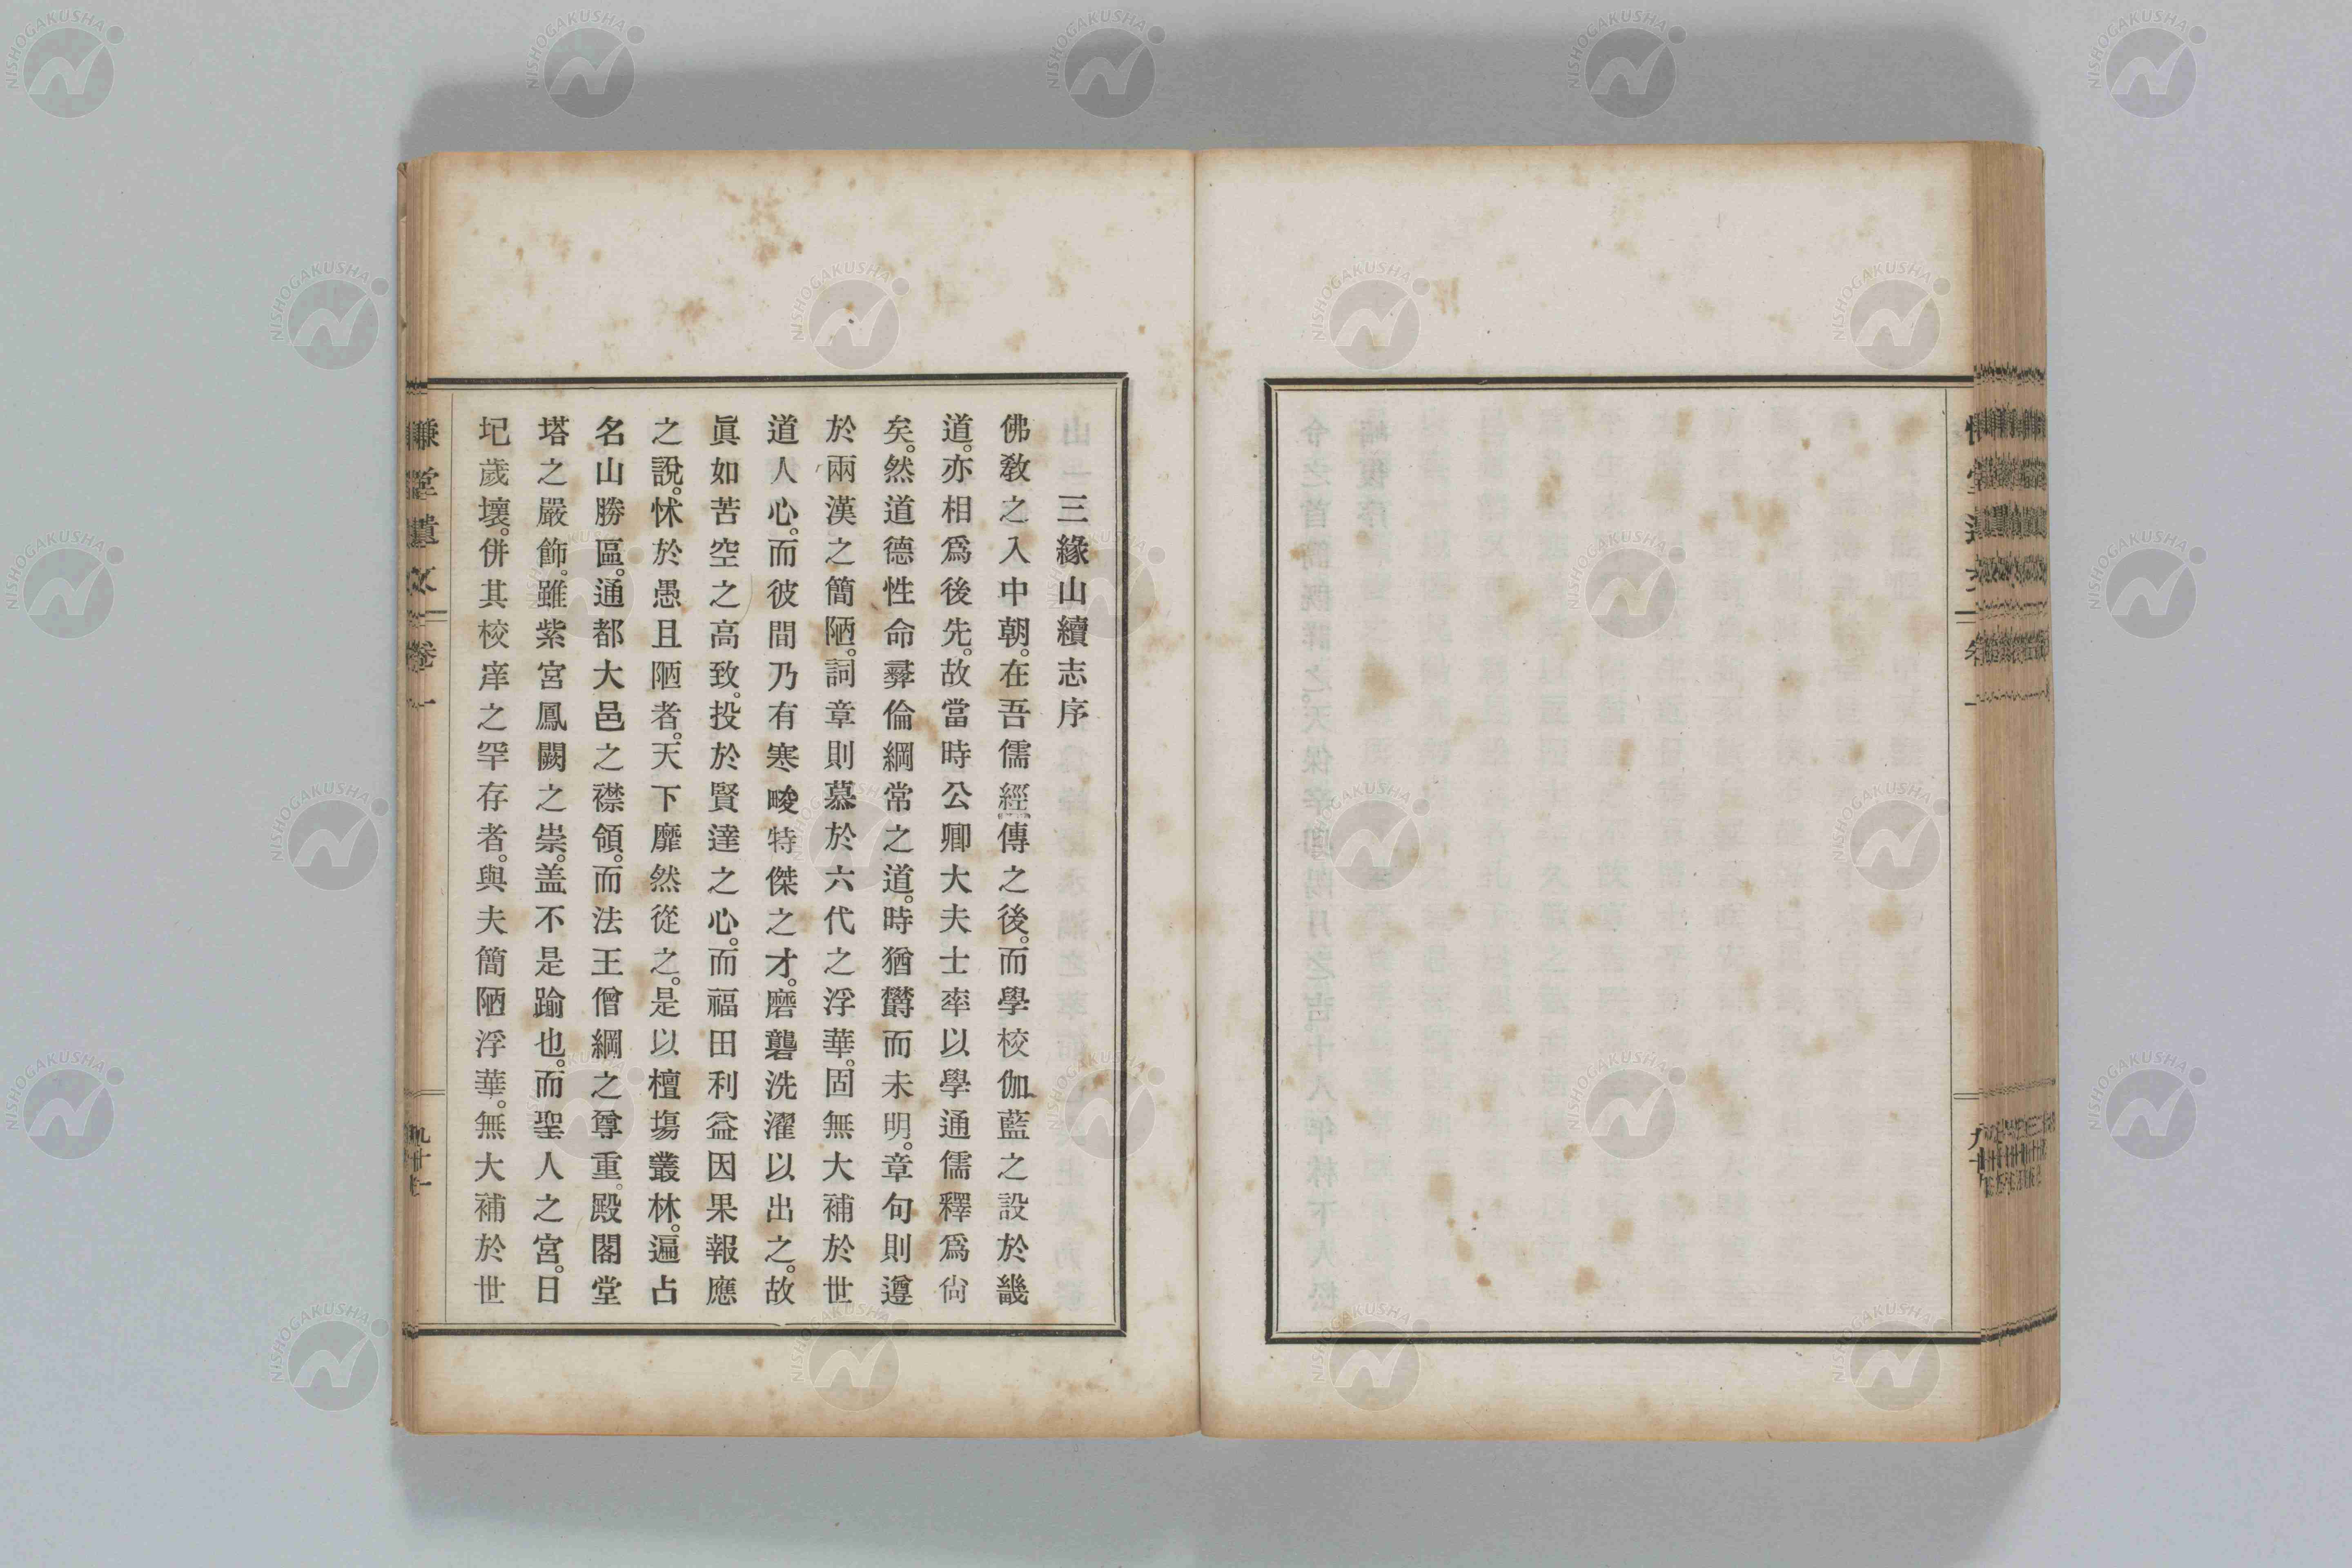 三緣山續志序
佛教之入中朝。在吾儒經傳之後。而學校伽藍之設於畿
道。亦相爲後先。故當時公卿大夫士率以學通儒釋爲尙
矣。然道德性命彛倫綱常之道。時猶欝而未明。章句則遵
於兩漢之簡陋。詞章則慕於六代之浮華。固無大補於世
道人心。而彼間乃有寒畯特傑之才。磨礱洗濯以出之。故
眞如苦空之高致。投於賢達之心。而福田利益因果報應
之說。怵於愚且陋者。天下靡然從之。是以檀塲叢林。遍占
名山勝區。通都大邑之襟領。而法王僧綱之尊重。殿閣堂
塔之嚴飾。雖紫宮鳳闕之崇。盖不是踰也。而聖人之宮。日
圮歲壞。併其校庠之罕存者。與夫簡陋浮華。無大補於世
慊堂遺文 卷一
NISHOGAKUSHA